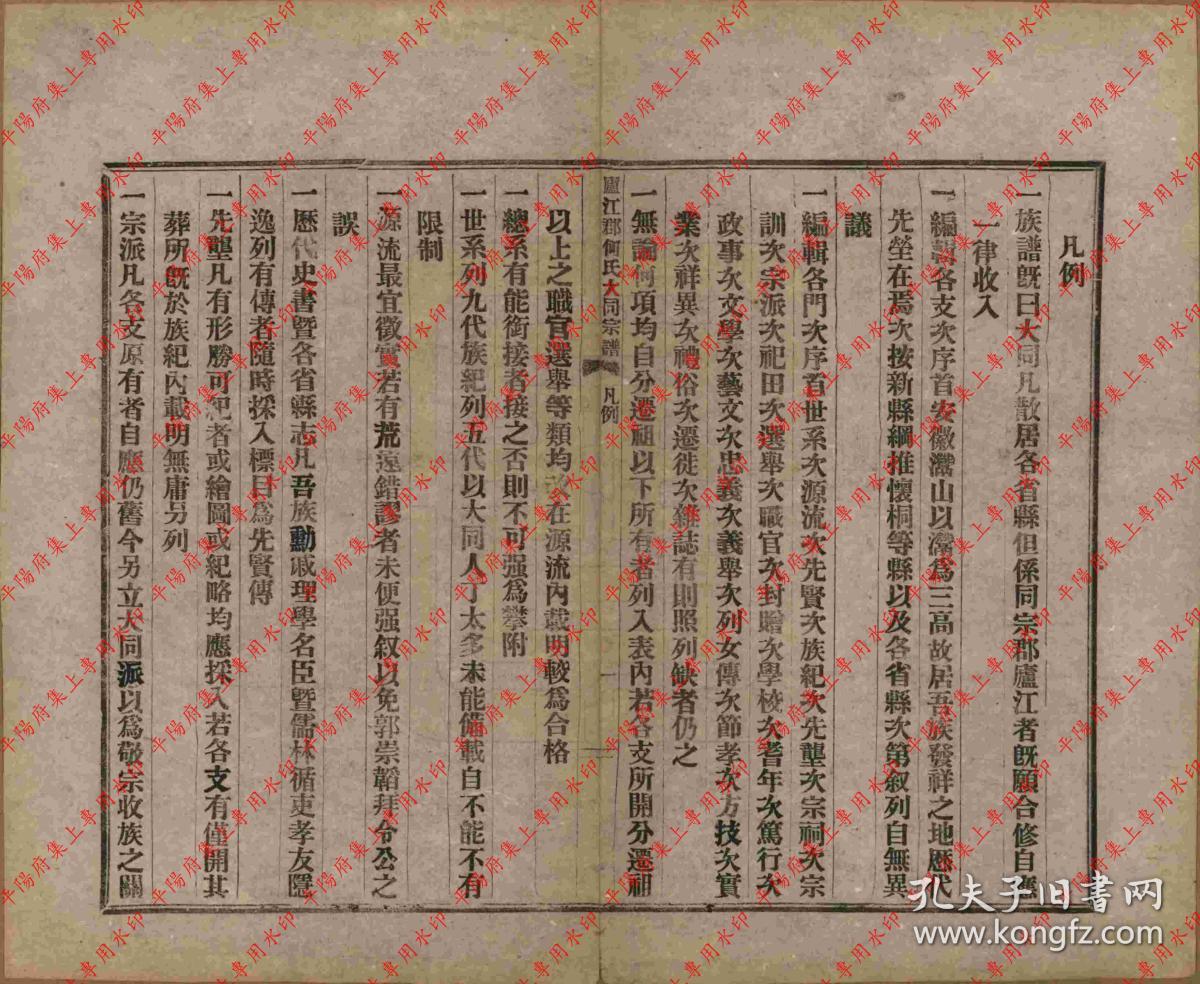 凡例
一族譜旣曰大同凡散居各省縣但係同宗郡廬江者旣願合修自應
一律收入
一編輯各支次序首安徽灊山以灊爲三高故居吾族發祥之地歷代
先塋在焉次按新縣綱推懷桐等縣以及各省縣次第叙列自無異
議
一編輯各門次序首世系次源流次先賢次族紀次先壟次宗祠次宗
訓次宗派次祀田次選舉次職官次封贈次學校次耆年次篤行次
政事次文學次藝文次忠義次義舉次列女傳次節孝次方技次實
業次祥異次禮俗次遷徙次雜誌有則照列缺者仍之
一無論何項均自分遷祖以下所有者列入表內若各支所開分遷祖
廬江郡何氏大同宗譜 凡例 一
以上之職官選舉等類均 在源流內載明較爲合格
一總系有能銜接者接之否則不可强爲攀附
一世系列九代族紀列五代以大同人丁太多未能備載自不能不有
限制
一源流最宜徵實若有荒遠錯謬者未便强叙以免郭崇韜拜汾公之
誤
一歷代史書曁各省縣志凡吾族勳戚理學名臣曁儒林循吏孝友隱
逸列有傳者隨時採入標目爲先賢傳
一先壟凡有形勝可紀者或繪圖或紀略均應採入若各支有僅開其
葬所旣於族紀內載明無庸另列
一宗派凡各支原有者自應仍舊今另立大同派以爲敬宗收族之關
平陽府集上專用水印
孔夫子旧書网
www.kongfz.com